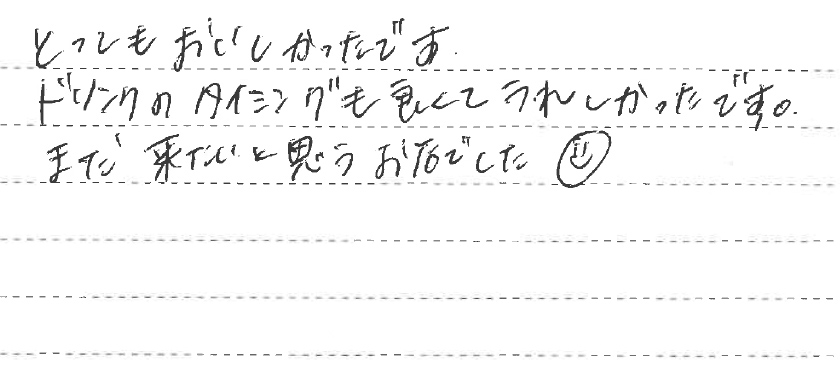 とってもおいしかったです.
ドリンクのタイミングも良くてうれしかったです。
また来たいと思うお店でした